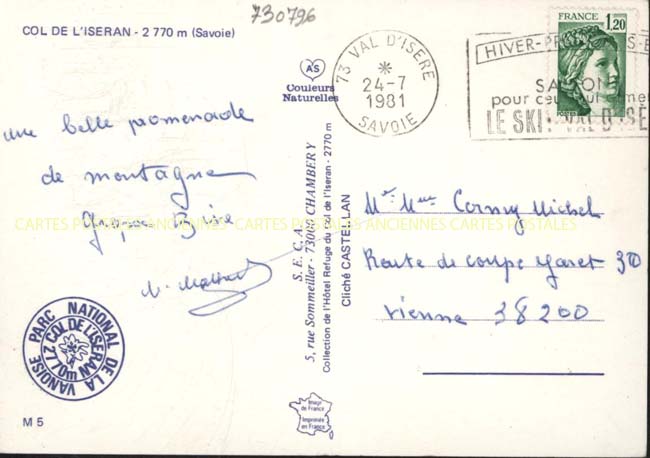 730796
COL DE L'ISERAN - 2 770 m (Savoie)
AS
Couleurs
Naturelles
73 VAL D'ISERE
24-7
1981
SAVOIE
FRANCE
1,20
POSTES
pour ceux qui
LE SKI: VAL D'ISE
une belle promenade
de montagne
CARTES POSTALES ANCIENNES CARTES POSTALES ANCIENNES CARTES POSTALES
S.E.C.A.
5, rue Sommeiller - 73000 CHAMBERY
Collection de l'Hôtel Refuge du col de l'Iseran - 2770 m
Cliché CASTELLAN
Mr Mme Michel
Route de coupe 30
Vienne 38200
PARC NATIONAL DE LA VANOISE
COL DE L'ISERAN 2770m
Image
de France
Imprimée
en France
M 5